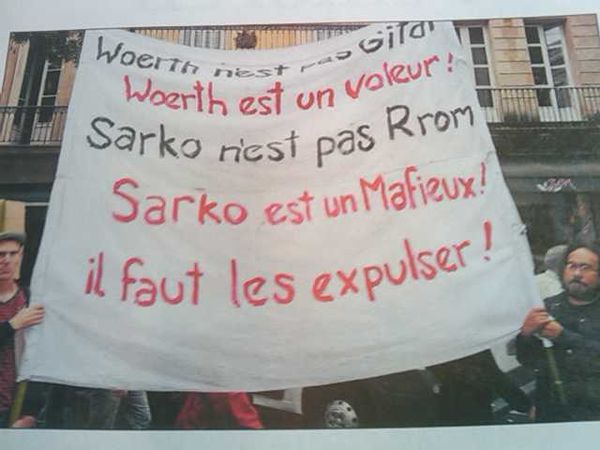 Woerth n'est pas Gitan
Woerth est un voleur !
Sarko n'est pas Rrom
Sarko est un Mafieux !
il faut les expulser !